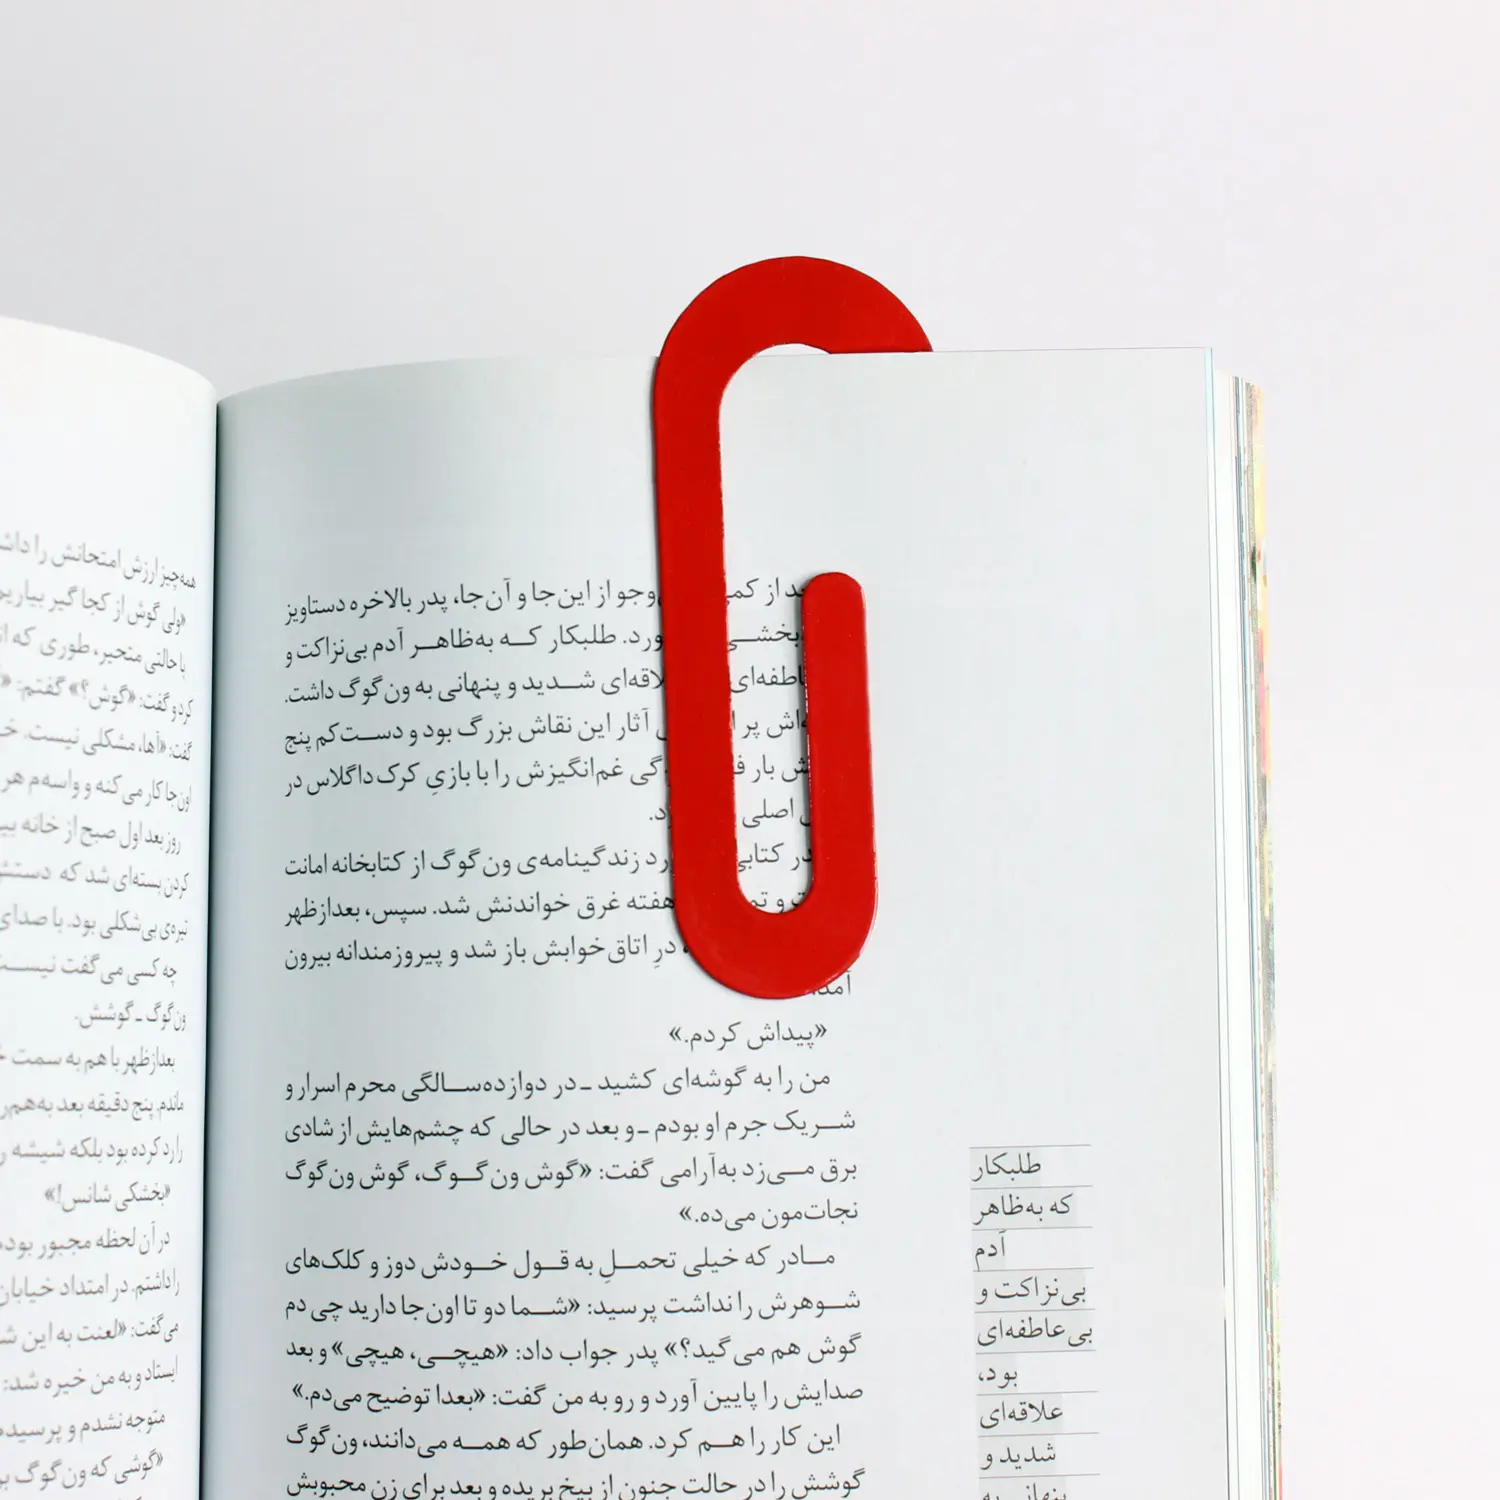 از کم وجو از این‌جا و آن‌جا، پدر بالاخره دستاویز
بخشی ورد. طلبکار که به‌ظاهر آدم بی‌نزاکت و
اطفه‌ای لاقه‌ای شدید و پنهانی به ون‌گوگ داشت.
ه‌اش پر آثار این نقاش بزرگ بود و دست‌کم پنج
ش بار گی غم‌انگیزش را با بازیِ کرک داگلاس در
اصلی د.
در کتابی رد زندگینامه‌ی ون‌گوگ از کتابخانه امانت
و هفته غرق خواندنش شد. سپس، بعدازظهر
، درِ اتاق خوابش باز شد و پیروزمندانه بیرون
آمد
«پیداش کردم.»
من را به گوشه‌ای کشید ـ در دوازده‌سالگی محرم اسرار و
شریک جرم او بودم ـ و بعد در حالی که چشم‌هایش از شادی
برق می‌زد به‌آرامی گفت: «گوش ون‌گوگ، گوش ون‌گوگ
نجات‌مون می‌ده.»
مادر که خیلی تحملِ به قول خودش دوز و کلک‌های
شوهرش را نداشت پرسید: «شما دو تا اون‌جا دارید چی دم
گوش هم می‌گید؟» پدر جواب داد: «هیچی، هیچی» و بعد
صدایش را پایین آورد و رو به من گفت: «بعدا توضیح می‌دم.»
این کار را هم کرد. همان‌طور که همه می‌دانند، ون‌گوگ
گوشش را در حالت جنون از بیخ بریده و بعد برای زن محبوبش
طلبکار
که به‌ظاهر
آدم
بی‌نزاکت و
بی‌عاطفه‌ای
بود،
علاقه‌ای
شدید و
پنهانی به
همه‌چیز ارزش امتحانش را داش
«ولی گوش از کجا گیر بیاریم
با حالتی متحیر، طوری که از
کرد و گفت: «گوش؟» گفتم: «
گفت: «آها، مشکلی نیست. خ
اون‌جا کار می‌کنه و واسه‌م هر
روز بعد اول صبح از خانه بی
کردن بسته‌ای شد که دستش
تیره‌ی بی‌شکلی بود. با صدای
چه کسی می‌گفت نیست
ون‌گوگ ـ گوشش.
بعدازظهر با هم به سمت خ
ماندم. پنج دقیقه بعد به‌هم‌ر
را رد کرده بود بلکه شیشه ر
«بخشکی شانس!»
در آن لحظه مجبور بودم
را داشتم. در امتداد خیابان
می‌گفت: «لعنت به این ش
ایستاد و به من خیره شد:
متوجه نشدم و پرسیدم
«گوشی که ون‌گوگ بر